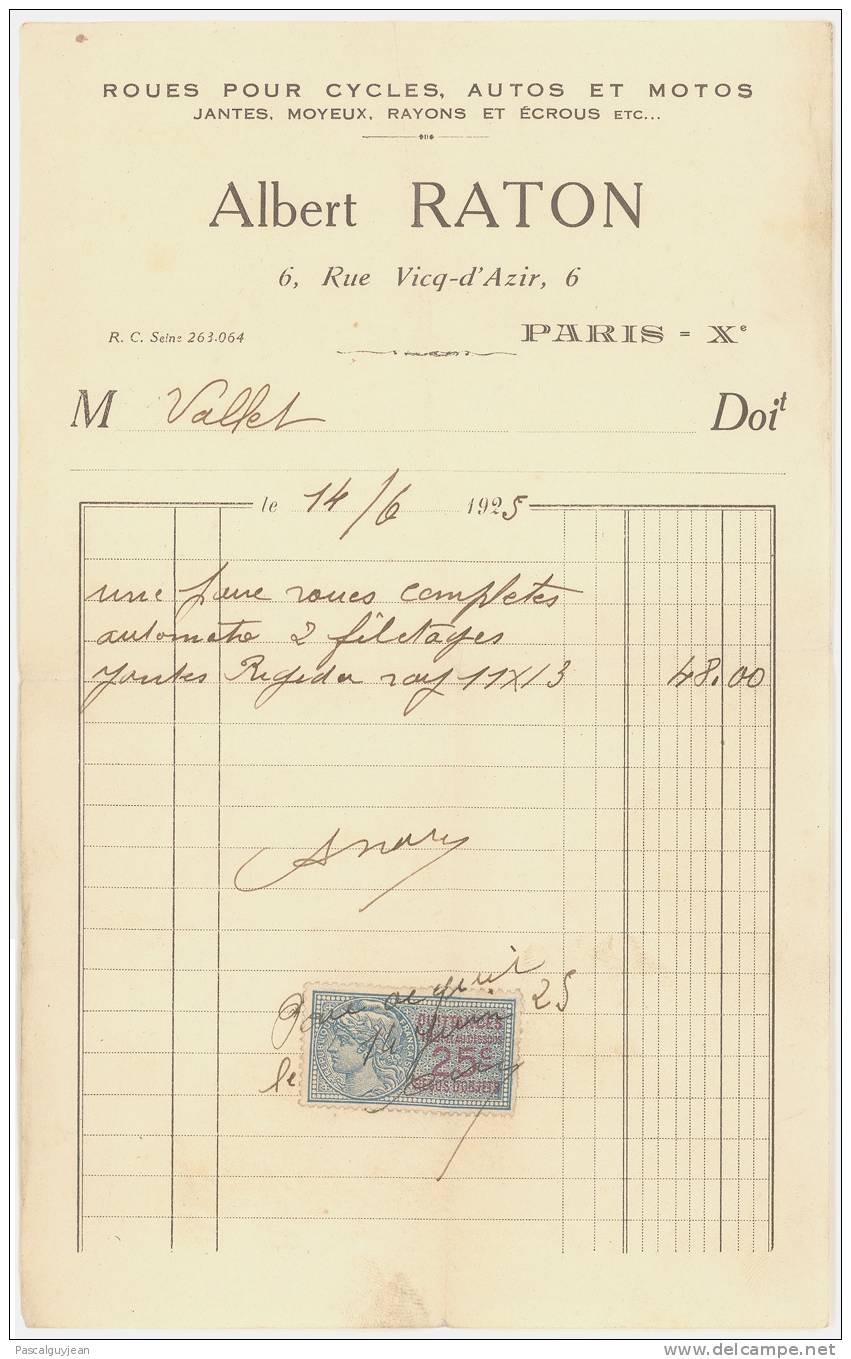 ROUES POUR CYCLES, AUTOS ET MOTOS
JANTES, MOYEUX, RAYONS ET ÉCROUS ETC...
Albert RATON
6, Rue Vicq-d'Azir, 6
R. C. Seine 263.064
PARIS = Xe
M Vallet Doit
le 14/6 1925
une paire roues completes
automoto 2 filetages
Jantes Rigida ray 11x13 48.00
Pour acquit
le 14 Juin 25
QUITTANCES
25c
Pascalguyjean
delcampe.net